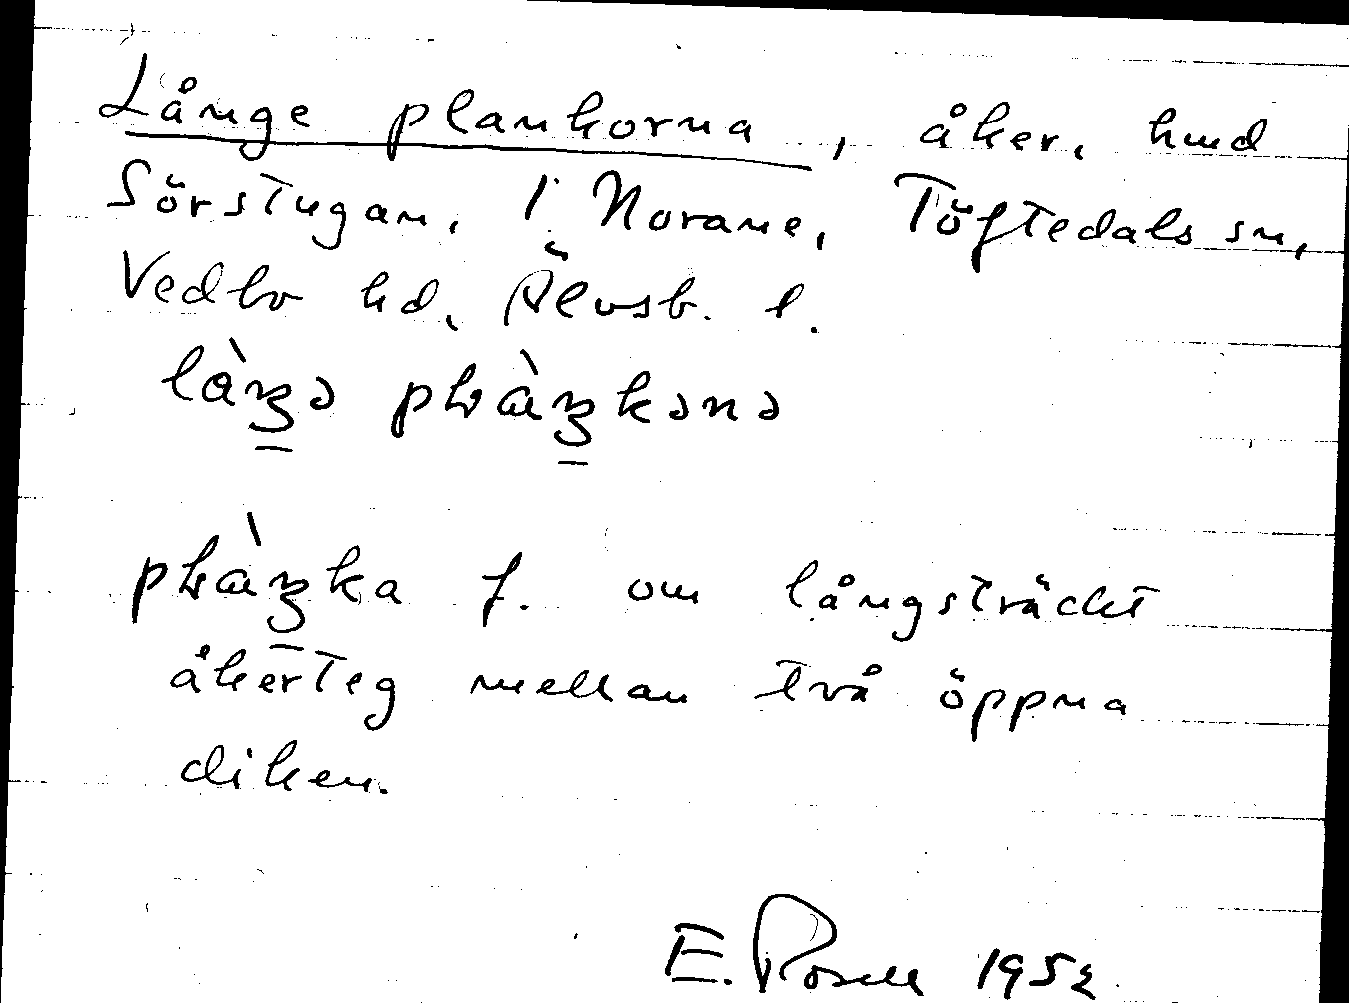 Långe plankorna, åker, hmd
Sörstugan, 1 Norane, Töftedals sn,
Vedbo hd, Älvsb. l.
làŋə plàŋkənə
plàŋka f. om långsträckt
åkerteg mellan två öppna
diken.
E. Rosell 1952